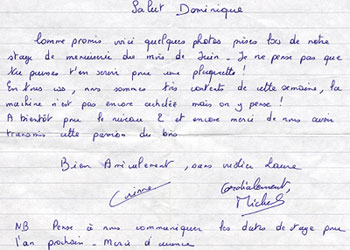 Salut Dominique
Comme promis voici quelques photos prises lors de notre
stage de menuiserie du mois de Juin. Je ne pense pas que
tu puisses t'en servir pour une plaquette!
En tous cas, nous sommes très contents de cette semaine, la
machine n'est pas encore achetée mais on y pense!
A bientôt pour le niveau 2 et encore merci de nous avoir
transmis cette passion du bois
Bien Amicalement, sans
Corinne
Cordialement,
Michel
NB Pense à nous communiquer les dates de stage pour
l'an prochain - Merci d'avance